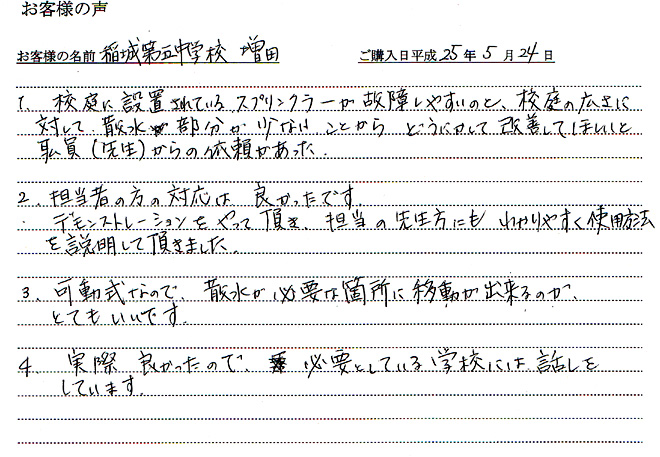 お客様の声
お客様の名前 稲城第五中学校 増田 ご購入日平成 25 年 5 月 24 日
1. 校庭に設置されているスプリンクラーが故障しやすいのと、校庭の広さに
対して散水 部分が少ないことから どうにかして改善してほしいと
職員(先生)からの依頼があった.
2. 担当者の方の対応は 良かったです.
・デモンストレーションをやって頂き、担当の先生方にも わかりやすく使用方法
を説明して頂きました.
3. 可動式なので、散水が必要な箇所に移動が出来るのが、
とてもいいです.
4. 実際 良かったので、 必要としている学校には話しを
しています.